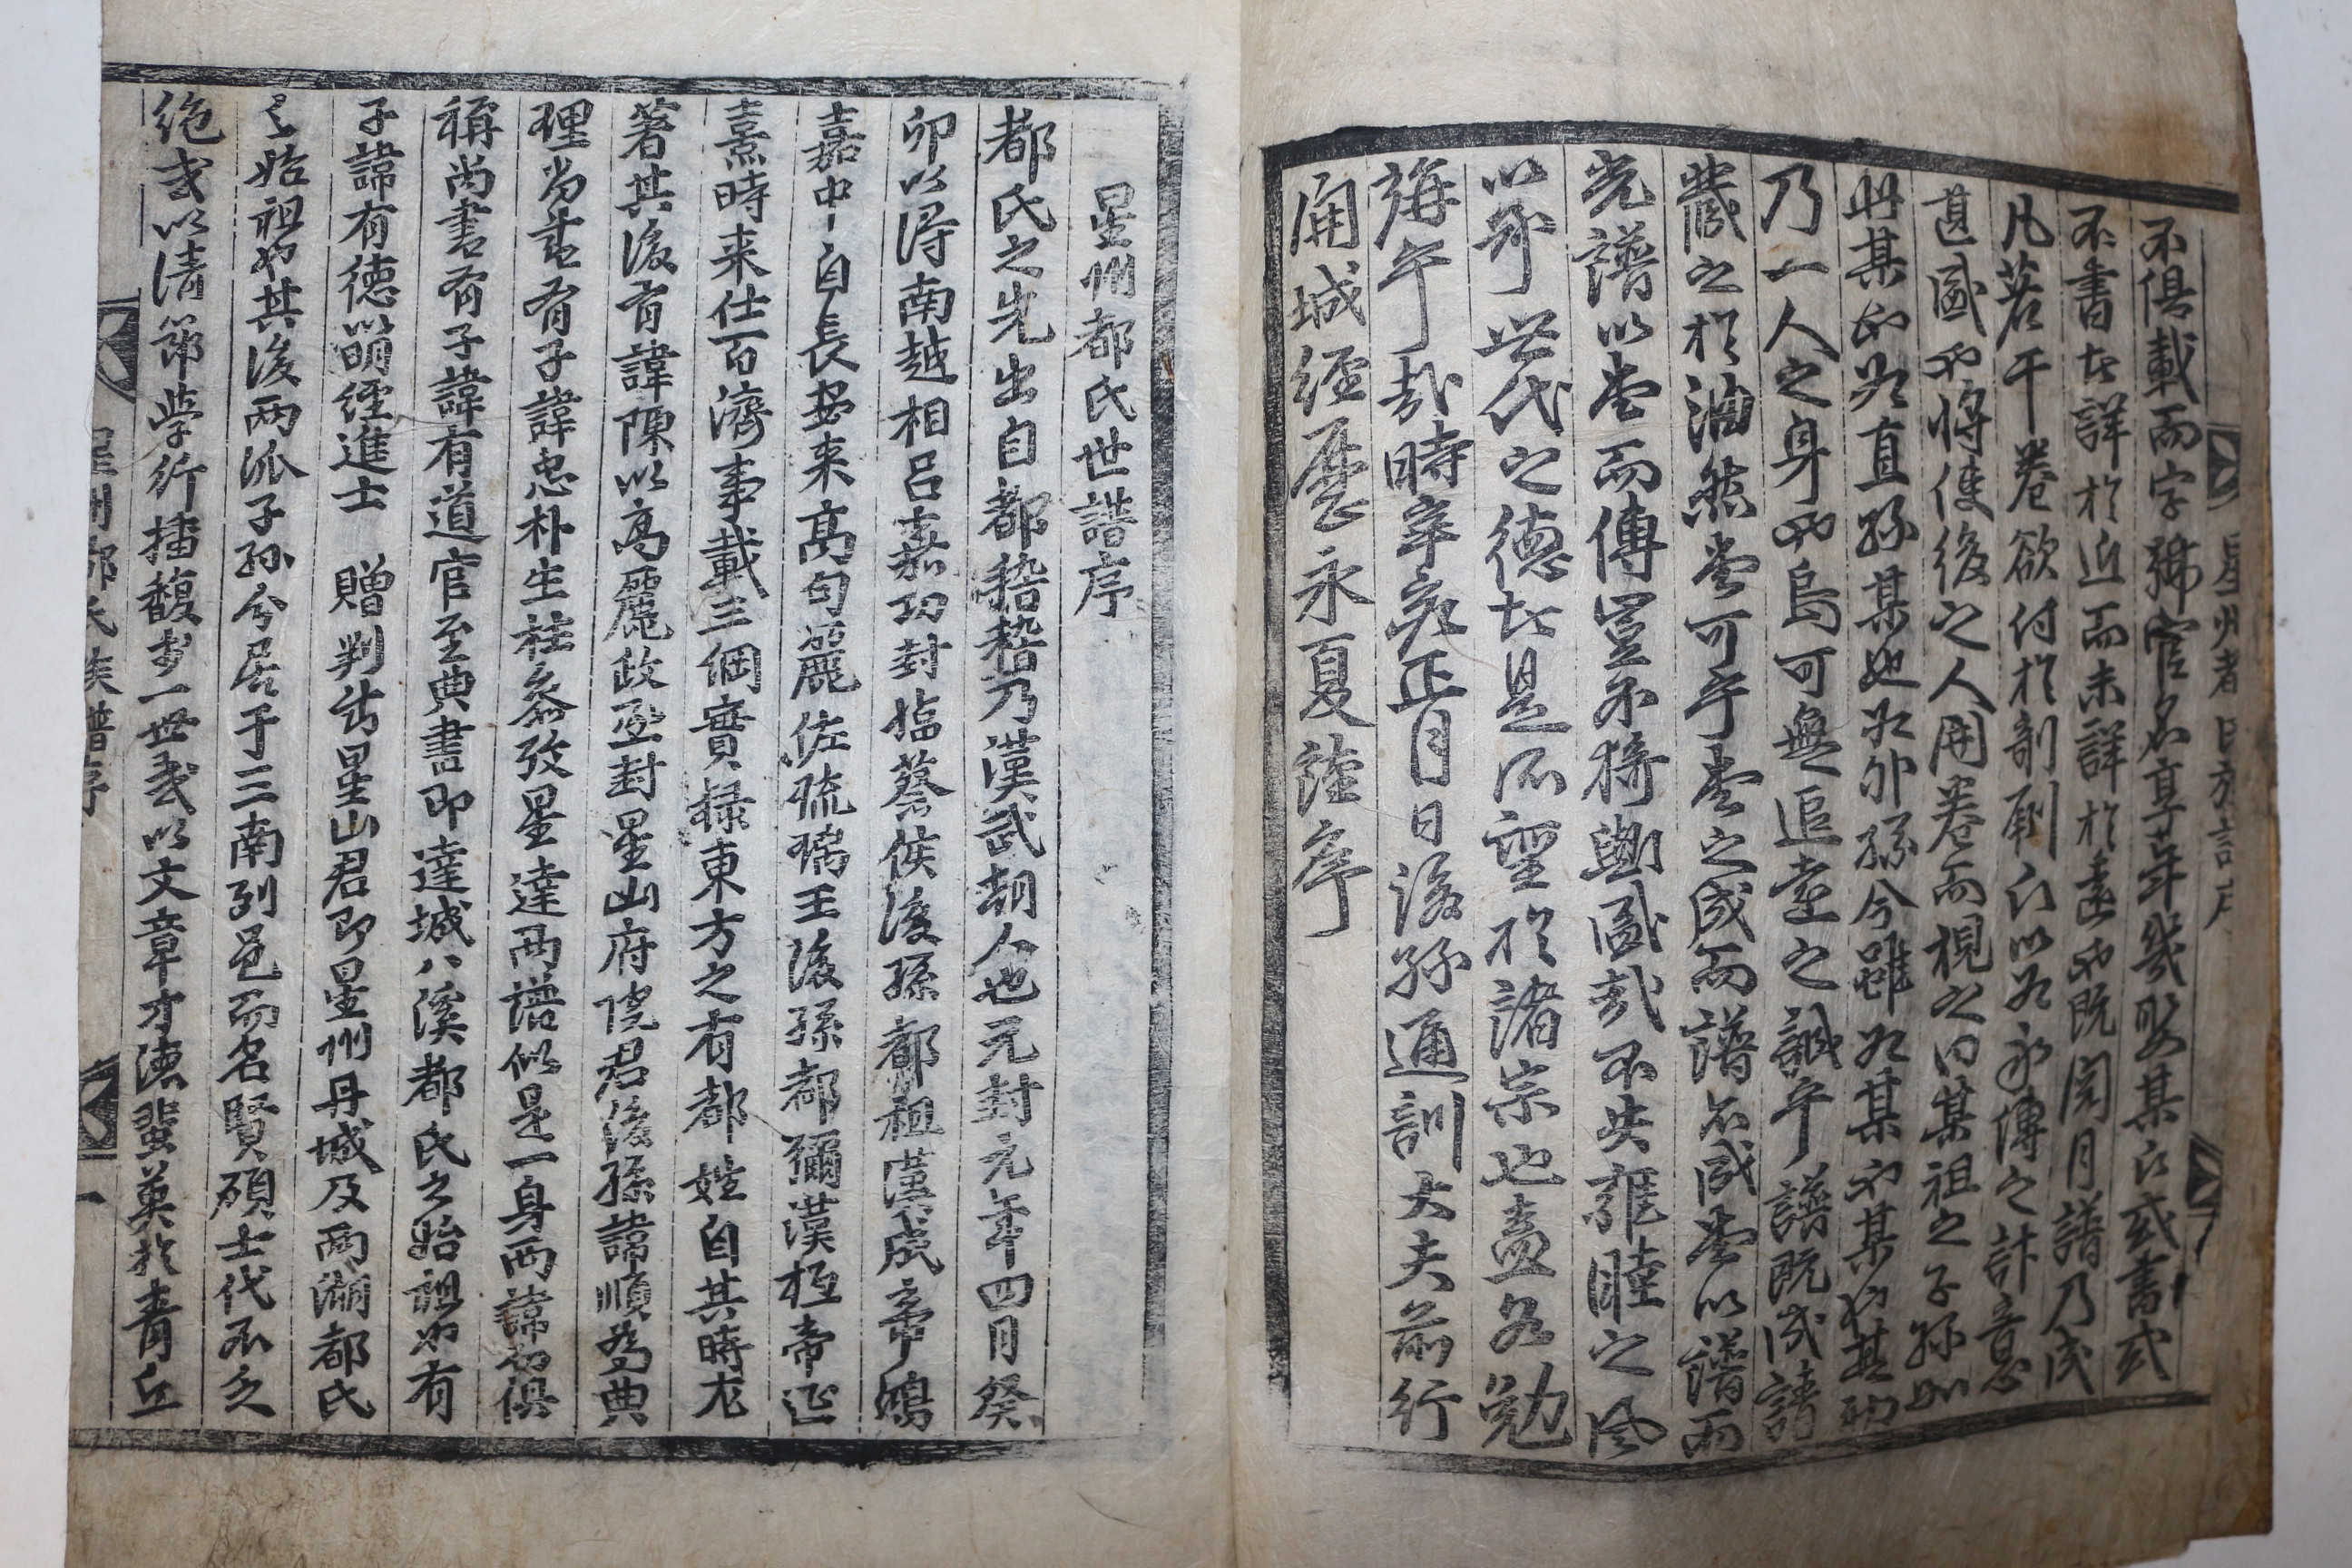 不俱載而字號官名享年幾娶某氏或書或
不書古詳於近而未詳於遠也既閱月譜乃成
凡若干卷欲付於剞劂氏以為永傳之計意
甚盛也將使後之人開卷而視之曰某祖之子孫如
此某也為直孫某也為外孫今雖為某也某也其初
乃一人之身也烏可無追遠之誠乎譜既成請
藏之於油然堂可乎堂之成而譜亦成堂以譜而
光譜以堂而傳豈不猗歟盛哉不失雍睦之風
以 世代之德古是所望於諸宗也盍各勉
旃乎哉時辛亥正月日後孫通訓大夫前行
開城經歷永夏謹序
星州都氏世譜序
都氏之先出自都稽稽乃漢武朝人也元封元年四月癸
卯以得南越相呂嘉功封臨蔡侯後孫都祖漢成帝鴻
嘉中自長安来高句麗佐琉璃王後孫都彌漢桓帝延
熹時来仕百濟事載三綱實録東方之有都姓自其時尤
著其後有諱陳以高麗政丞封星山府院君後孫諱順為典
理尚書有子諱忠朴生柱叅攷星達兩譜似是一身兩諱俱
稱尚書有子諱有道官至典書即達城八溪都氏之始祖也有
子諱有德以明經進士 贈判書星山君即星州丹城及兩湖都氏
之始祖也其後兩派子孫今居于三南列邑而名賢碩士代不乏
絶或以清節學行播馥於一世或以文章才德蜚英於青丘
星州都氏族譜序
一